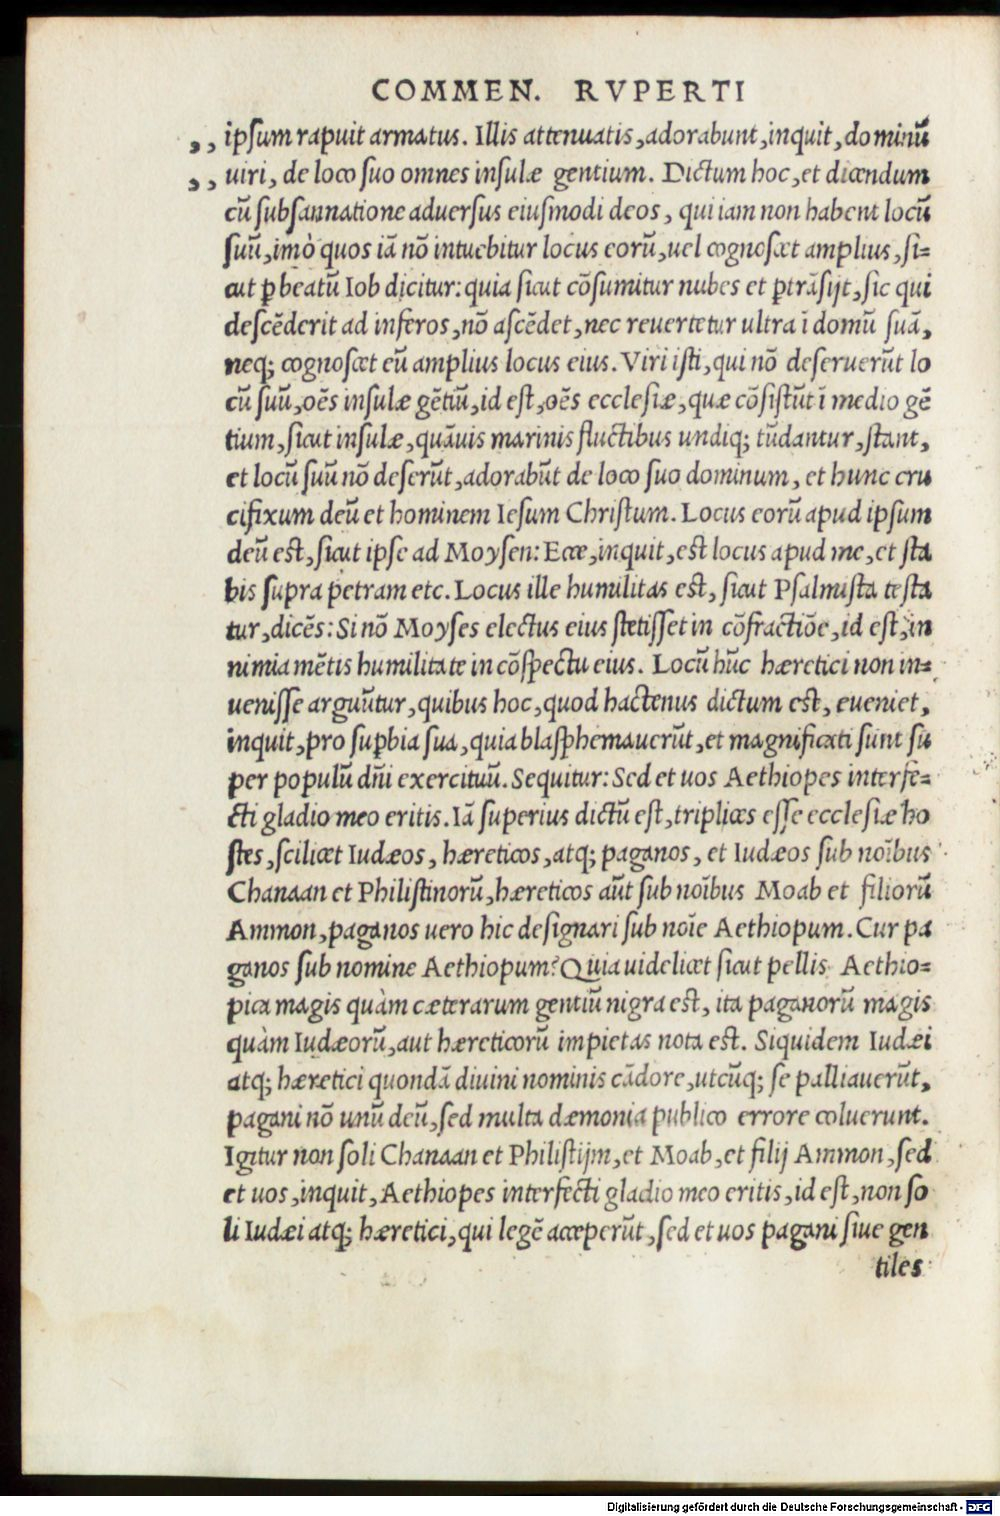 COMMEN. RVPERTI
,, ipſum rapuit armatus. Illis attenuatis, adorabunt, inquit, dominũ
,, uiri, de loco ſuo omnes inſulæ gentium. Dictum hoc, et dicendum
cũ ſubſannatione aduerſus eiuſmodi deos, qui iam non habent locũ
ſuũ, imò quos iã nõ intuebitur locus eorũ, uel cognoſcet amplius, ſi=
cut p̱ beatũ Iob dicitur: quia ſicut cõſumitur nubes et p̱trãſijt, ſic qui
deſcẽderit ad inferos, nõ aſcẽdet, nec reuertetur ultra ĩ domũ ſuã,
neq; cognoſcet eũ amplius locus eius. Viri iſti, qui nõ deſeruerũt lo
cũ ſuũ, oẽs inſulæ gẽtiũ, id eſt, oẽs eccleſiæ, quæ cõſiſtũt ĩ medio gẽ
tium, ſicut inſulæ, quãuis marinis fluctibus undiq; tũdantur, ſtant,
et locũ ſuũ nõ deſerũt, adorabũt de loco ſuo dominum, et hunc cru
cifixum deũ et hominem Ieſum Chriſtum. Locus eorũ apud ipſum
deũ eſt, ſicut ipſe ad Moyſen: Ecce, inquit, eſt locus apud me, et ſta
bis ſupra petram etc. Locus ille humilitas eſt, ſicut Pſalmiſta teſta
tur, dicẽs: Si nõ Moyſes electus eius ſtetiſſet in cõfractiõe, id eſt, in
nimia mẽtis humilitate in cõſpectu eius. Locũ hũc hæretici non in=
ueniſſe arguũtur, quibus hoc, quod hactenus dictum eſt, eueniet,
inquit, pro ſup̱bia ſua, quia blaſphemauerũt, et magnificati ſunt ſu
per populũ dñi exercituũ. Sequitur: Sed et uos Aethiopes interfe=
cti gladio meo eritis. Iã ſuperius dictũ eſt, triplices eſſe eccleſiæ ho
ſtes, ſcilicet Iudæos, hæreticos, atq; paganos, et Iudæos ſub noĩbus
Chanaan et Philiſtinorũ, hæreticos aũt ſub noĩbus Moab et filiorũ
Ammon, paganos uero hic deſignari ſub noĩe Aethiopum. Cur pa
ganos ſub nomine Aethiopum? Quia uidelicet ſicut pellis Aethio=
pica magis quàm cæterarum gentiũ nigra eſt, ita paganorũ magis
quàm Iudæorũ, aut hæreticorũ impietas nota eſt. Siquidem Iudæi
atq; hæretici quondã diuini nominis cãdore, utcũq; ſe palliauerũt,
pagani nõ unũ deũ, ſed multa dæmonia publico errore coluerunt.
Igitur non ſoli Chanaan et Philiſtijm, et Moab, et filij Ammon, ſed
et uos, inquit, Aethiopes interfecti gladio meo eritis, id eſt, non ſo
li Iudæi atq; hæretici, qui legẽ acceperũt, ſed et uos pagani ſiue gen
tiles
Digitalisierung gefördert durch die Deutsche Forschungsgemeinschaft - DFG